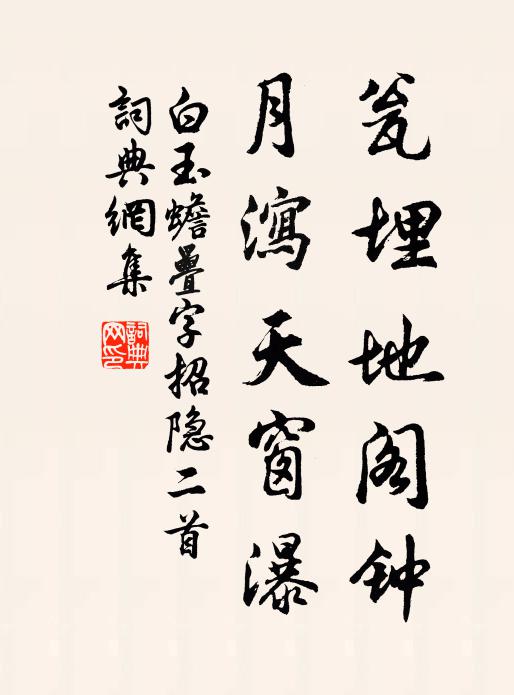 瓮埋地阁钟
月瀉天窗瀑
白玉蟾疊字招隐二首
詞典網集
詞典
网印